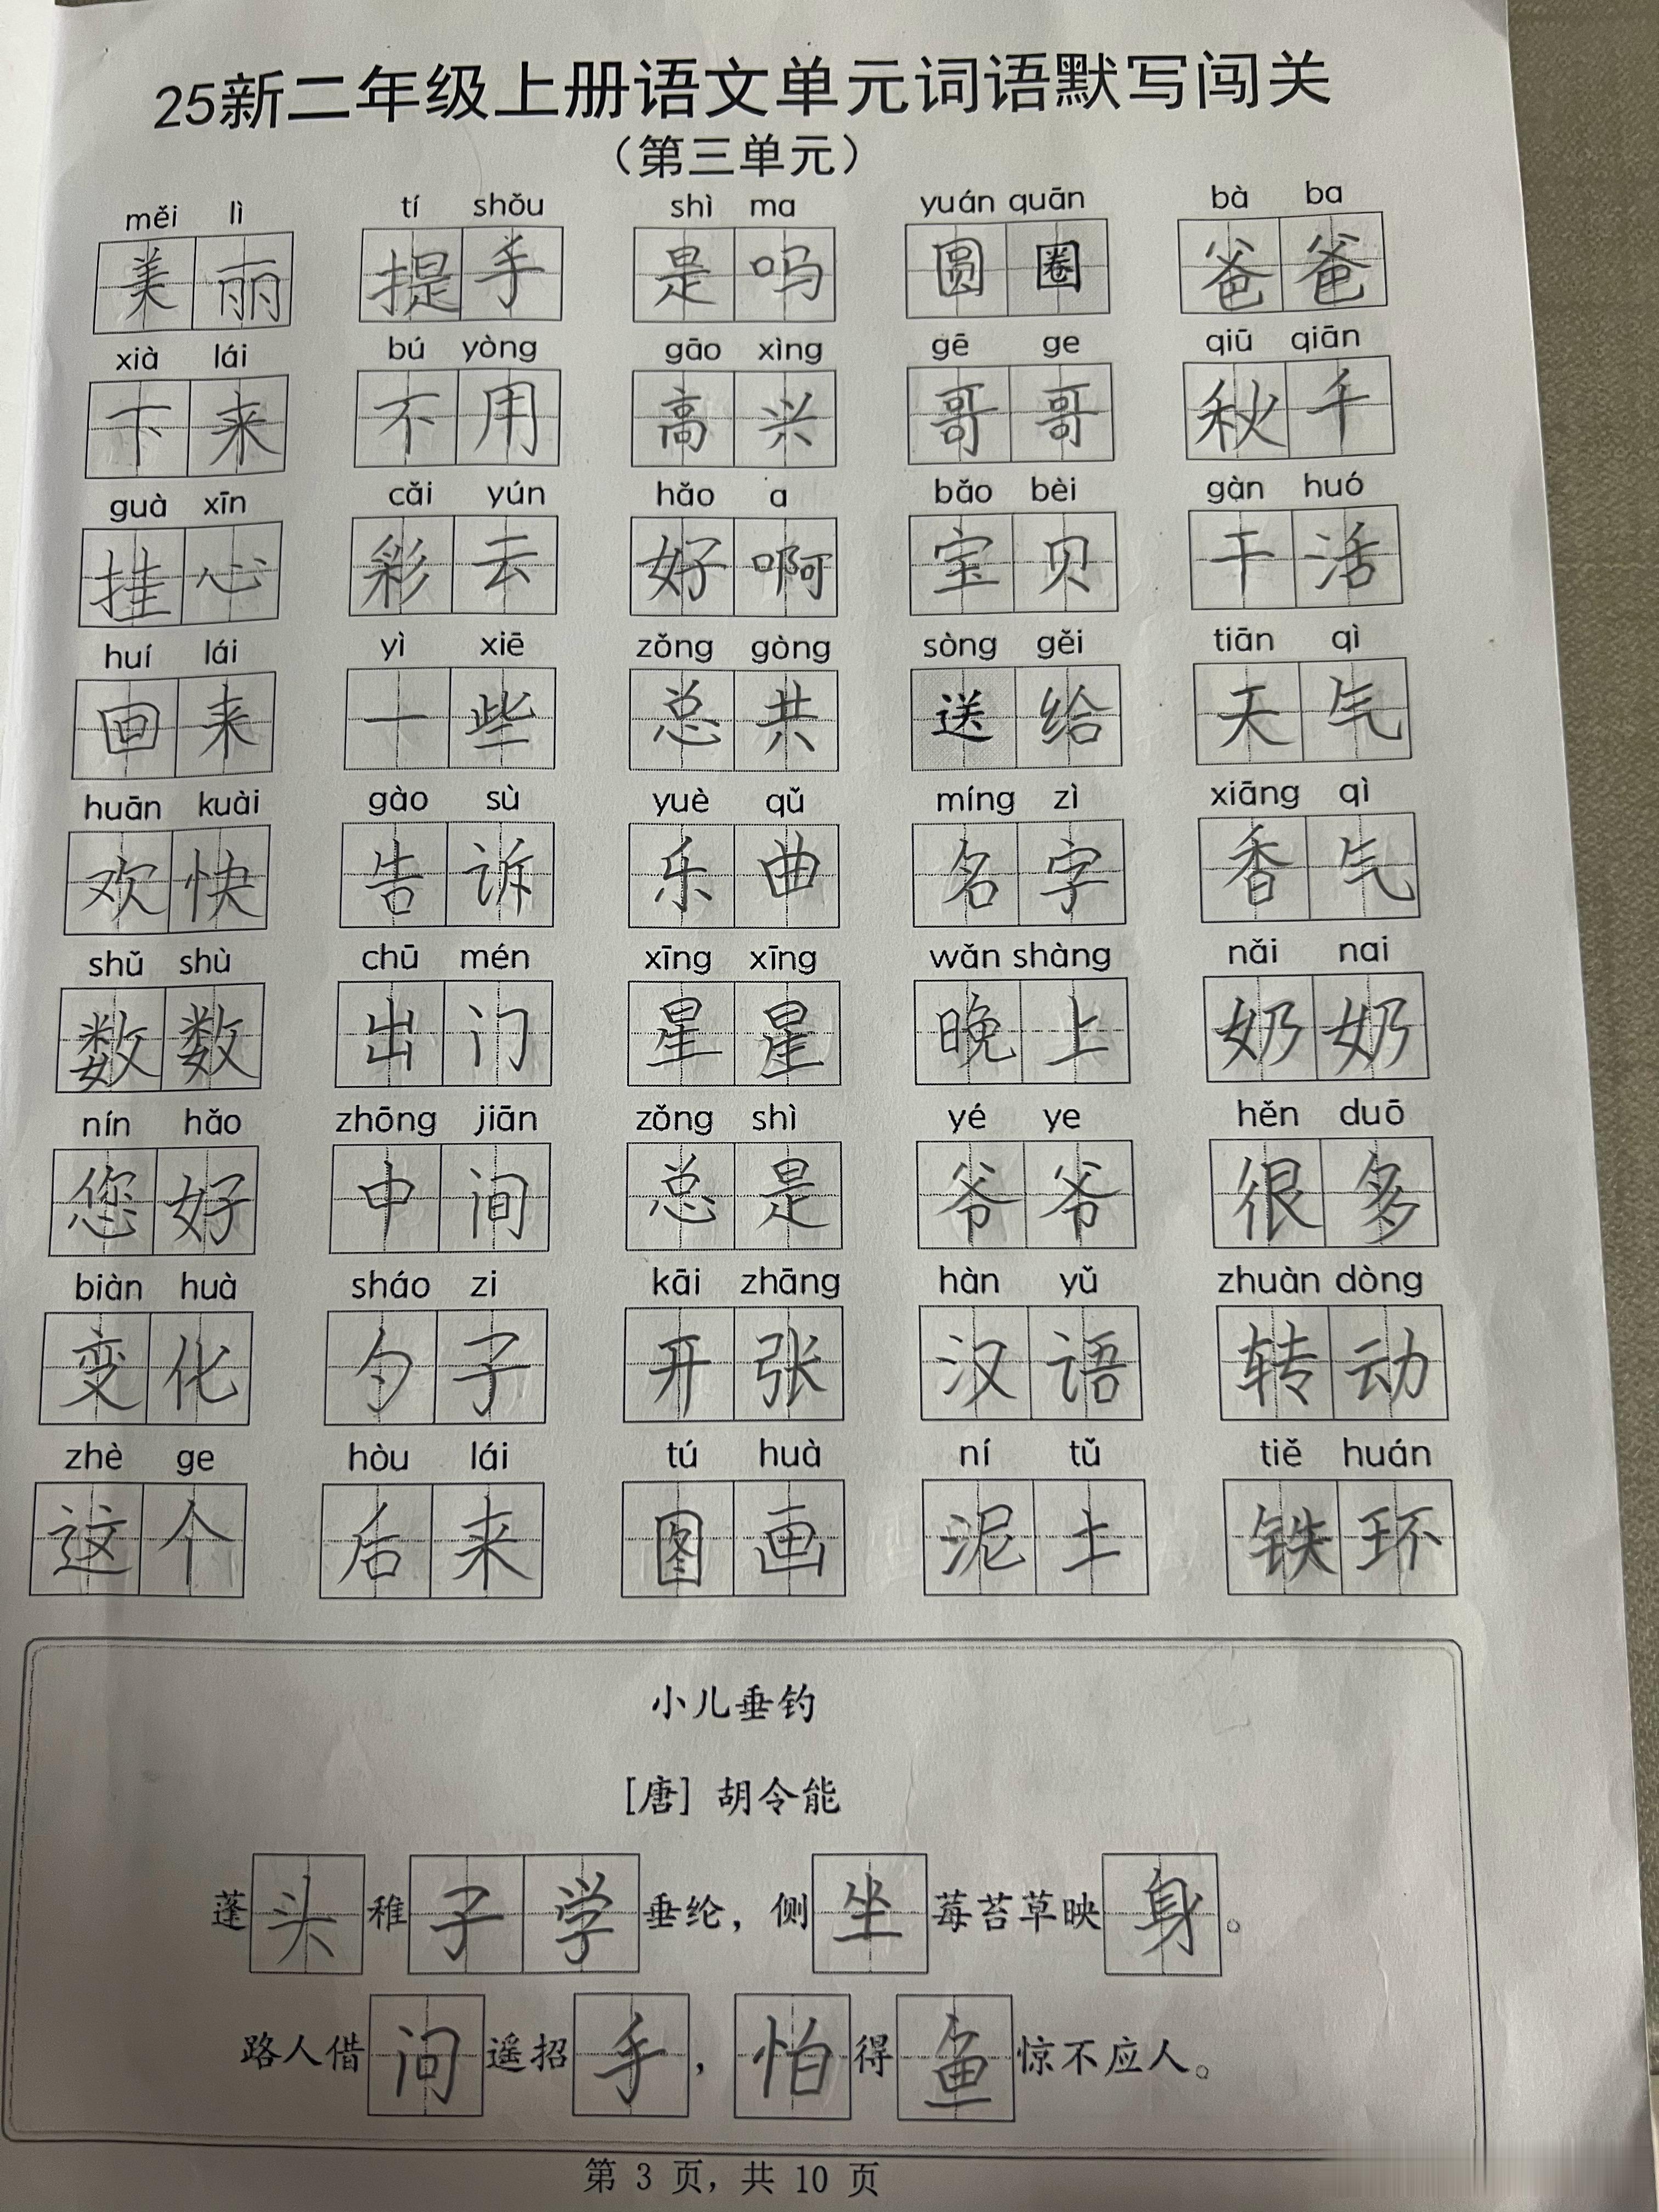 25新二年级上册语文单元词语默写闯关
（第三单元）
měi lì tí shǒu shì ma yuán quān bà ba
美丽 提手 是吗 圆圈 爸爸
xià lái bú yòng gāo xìng gē ge qiū qiān
下来 不用 高兴 哥哥 秋千
guà xīn cǎi yún hǎo a bǎo bèi gàn huó
挂心 彩云 好啊 宝贝 干活
huí lái yì xiē zǒng gòng sòng gěi tiān qì
回来 一些 总共 送给 天气
huān kuài gào sù yuè qǔ míng zì xiāng qì
欢快 告诉 乐曲 名字 香气
shǔ shù chū mén xīng xīng wǎn shàng nǎi nai
数数 出门 星星 晚上 奶奶
nín hǎo zhōng jiān zǒng shì yé ye hěn duō
您好 中间 总是 爷爷 很多
biàn huà sháo zi kāi zhāng hàn yǔ zhuàn dòng
变化 勺子 开张 汉语 转动
zhè ge hòu lái tú huà ní tǔ tiě huán
这个 后来 图画 泥土 铁环
小儿垂钓
[唐] 胡令能
蓬头稚子学垂纶，侧坐莓苔草映身。
路人借问遥招手，怕得鱼惊不应人。
第 3 页，共 10 页